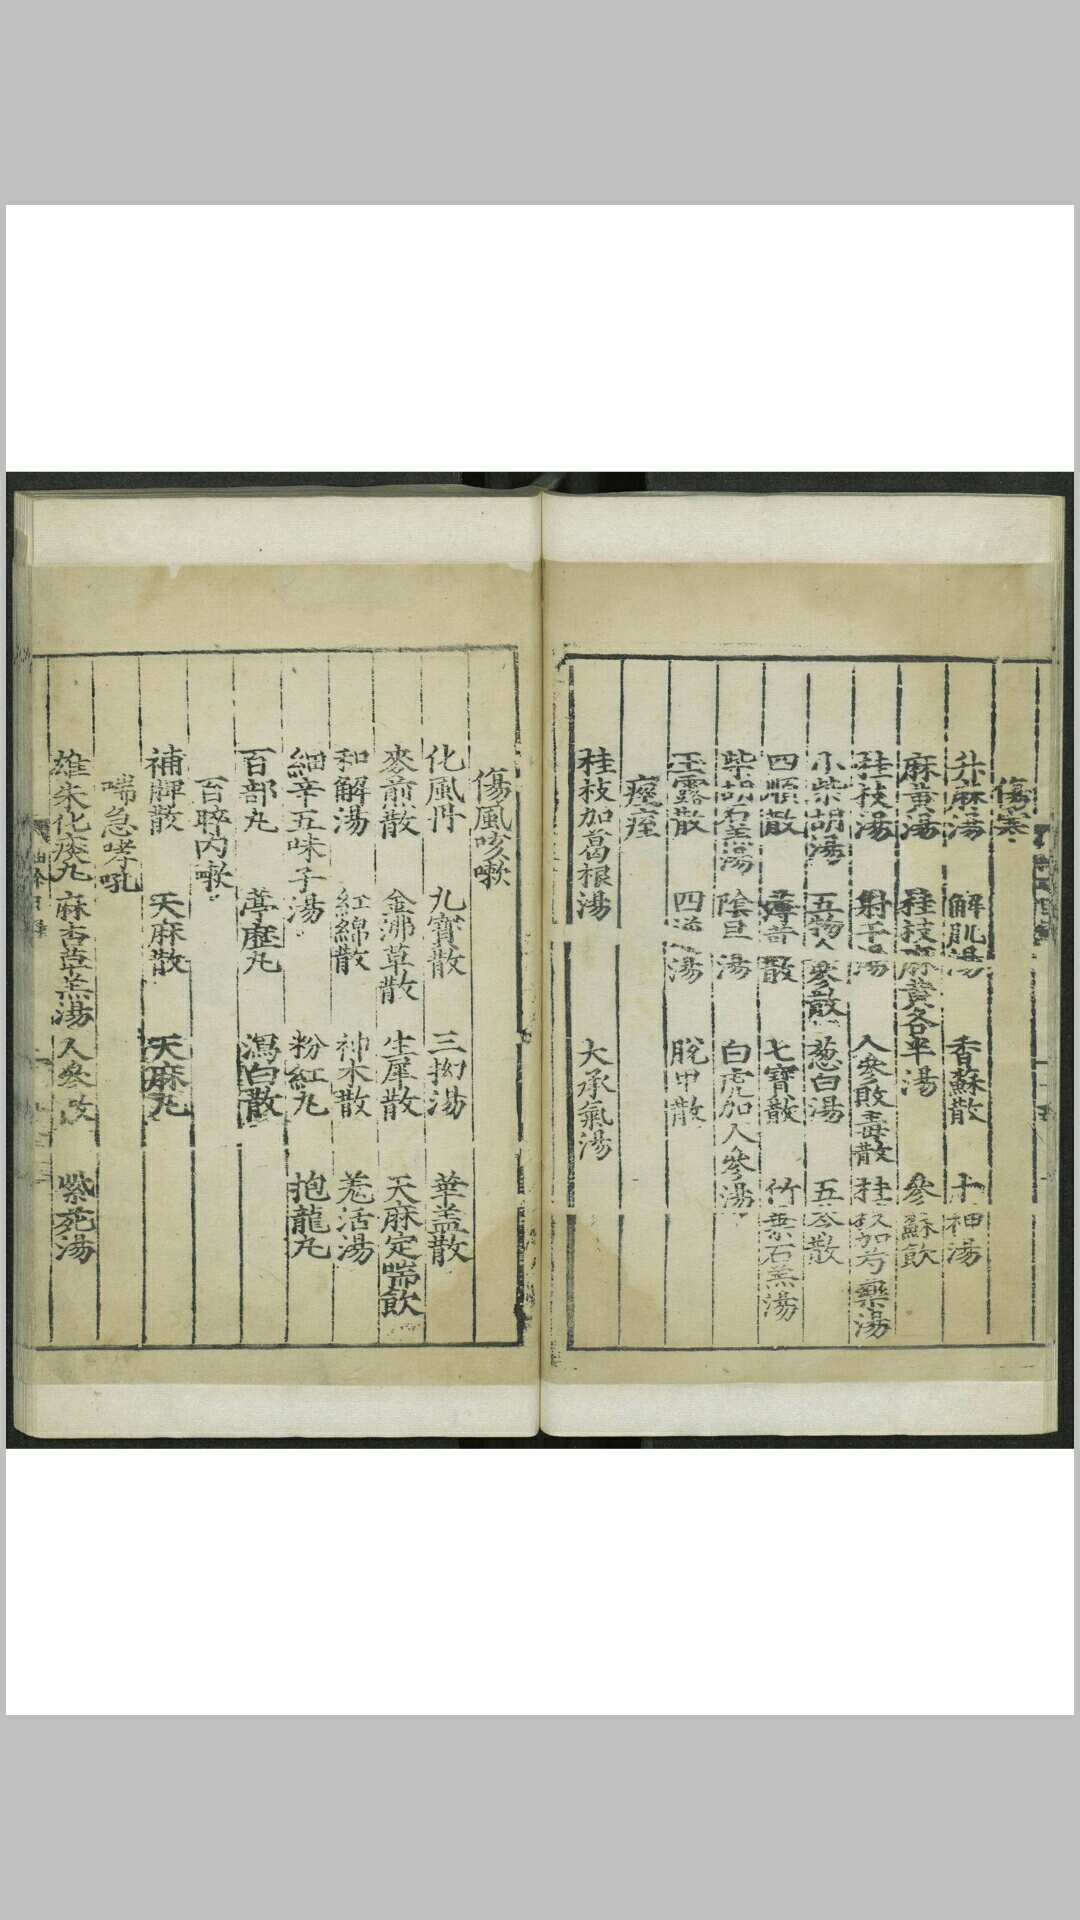 傷寒
升麻湯 解肌湯 香蘇散 十神湯
麻黃湯 桂枝麻黃各半湯 參蘇飲
桂枝湯 射干湯 人參敗毒散 桂枝加芍藥湯
小柴胡湯 五物人參散 葱白湯 五苓散
四順散 散 七寶散 竹葉石羔湯
柴胡石羔湯 陰旦湯 白虎加人參湯
玉露散 四逆湯 脫甲散
痙痓
桂枝加葛根湯 大承氣湯
傷風咳嗽
化風丹 九寶散 三拗湯 華盖散
麥煎散 金沸草散 生犀散 天麻定喘飲
和解湯 紅綿散 神木散 羌活湯
細辛五味子湯 粉紅丸 抱龍丸
百部丸 葶藶丸 瀉白散
百晬內嗽
補脾散 天麻散 天麻丸
喘急哮吼
雄朱化痰丸 麻杏草羔湯 人參 紫苑湯